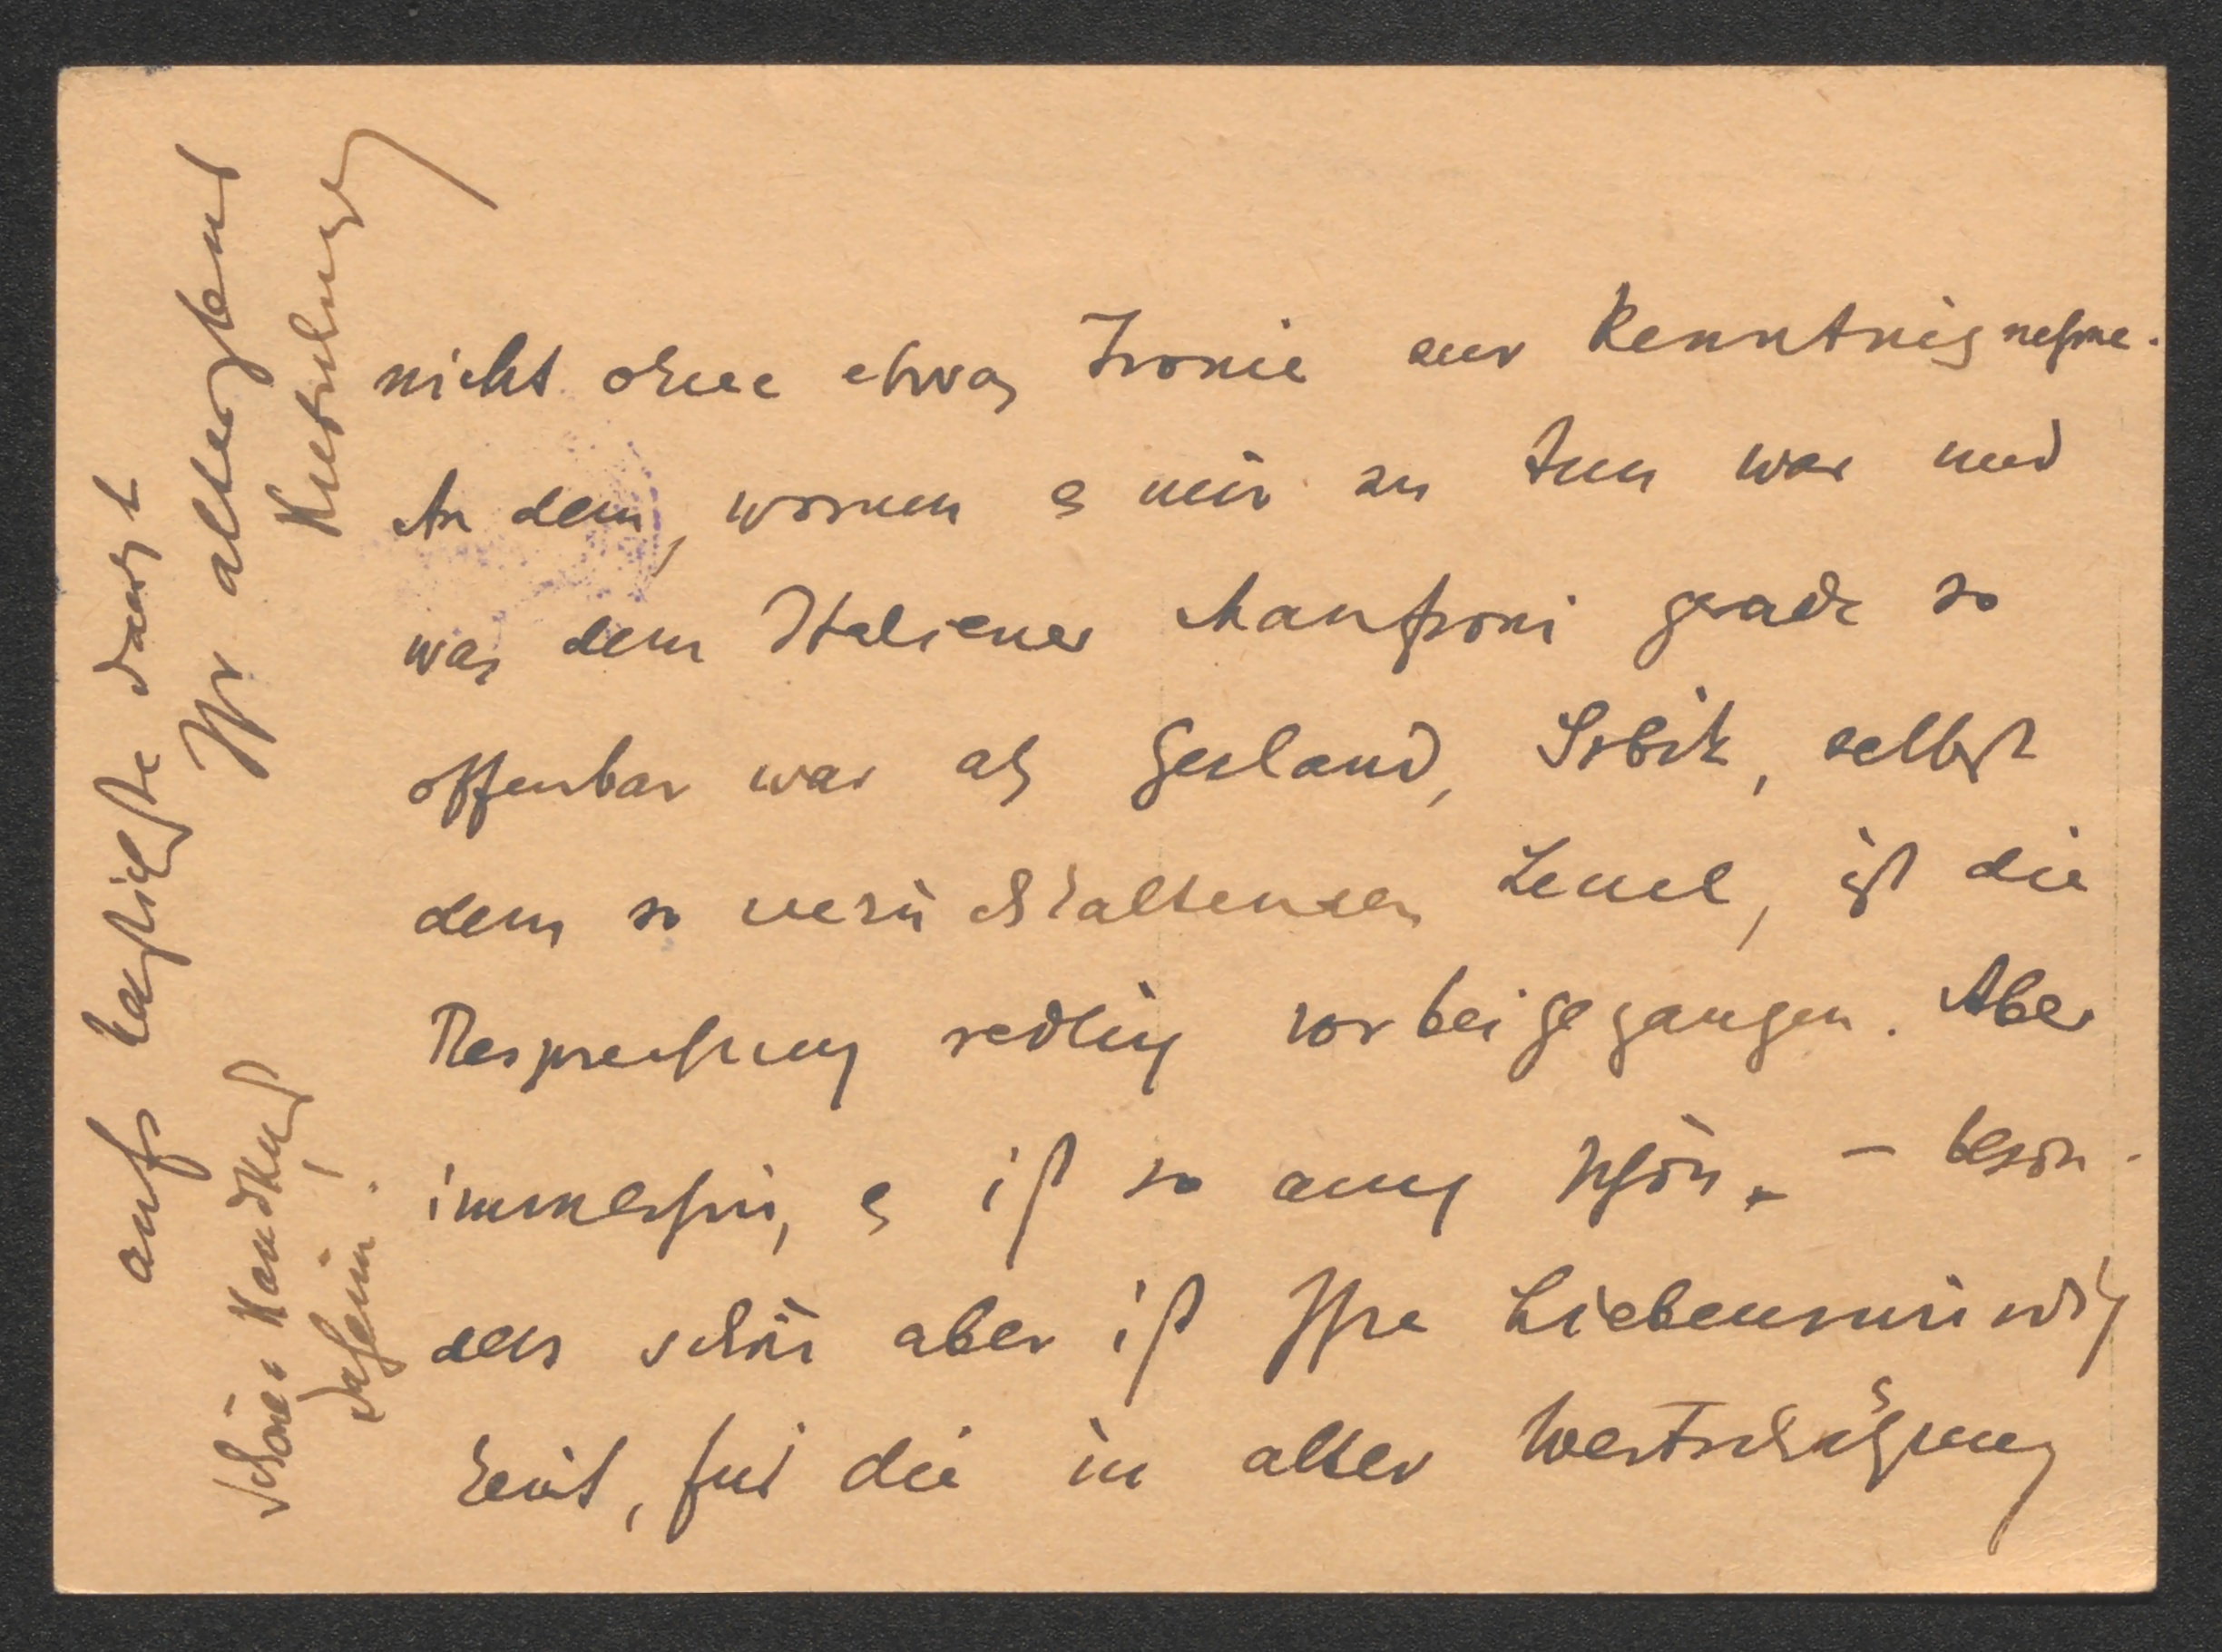 nicht ohne etwas Ironie zur Kenntnis nehme.
An dem, worum es mir zu tun war und
was dem Italiener Manfroni gerade so
offenbar war als Gerland, Srbik, selbst
dem so zurückhaltenden Lenel, ist die
Besprechung redlich vorbeigegangen. Aber
immerhin, es ist so auch schön. – beson-
ders schön aber ist Ihre Liebenswürdig
keit, für die in alter Wertschätzung
aufs herzlichste dankt
Ihr altergebener
Kretschmayr
Schönen Handkuß
daheim.